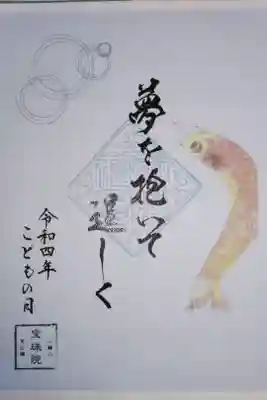 夢を抱いて
逞しく
令和四年
こどもの日
宝珠院